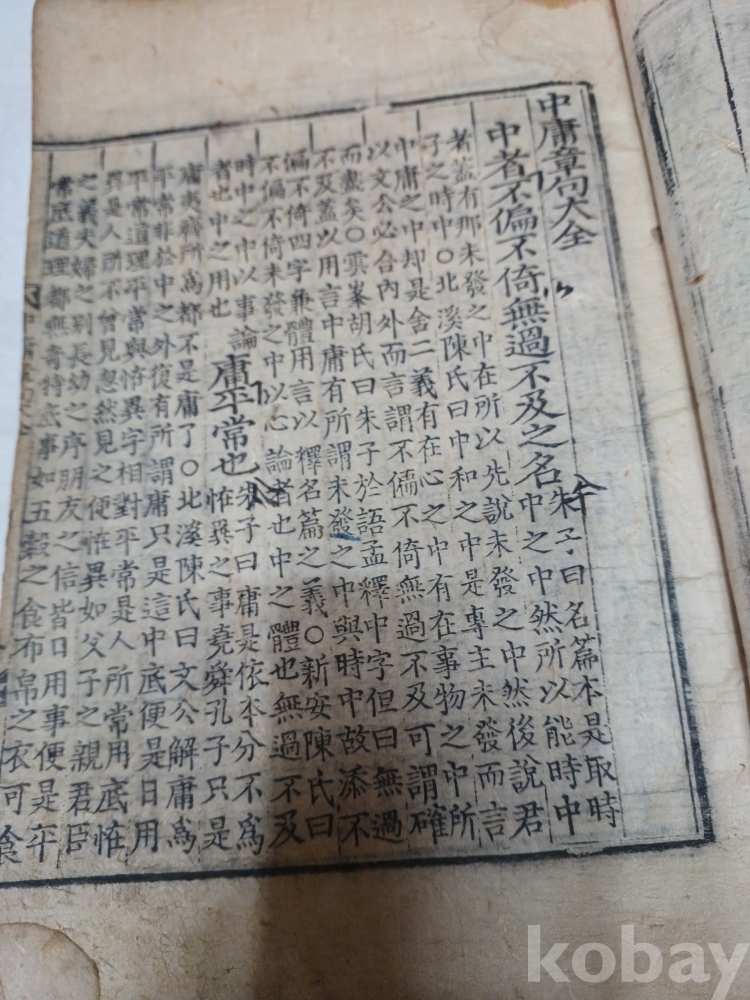 中庸章句大全
中者不偏不倚無過不及之名
朱子曰名篇本是取時
中之中然所以能時中
者蓋有那未發之中在所以先說未發之中然後說君
子之時中○北溪陳氏曰中和之中是專主未發而言
中庸之中却是含二義有在心之中有在事物之中所
以文公必合內外而言謂不偏不倚無過不及可謂確
而盡矣○雲峯胡氏曰朱子於語孟釋中字但曰無過
不及蓋以用言中庸有所謂未發之中與時中故添不
偏不倚四字兼體用言以釋名篇之義○新安陳氏曰
不偏不倚未發之中以心論者也中之體也無過不及
時中之中以事論
者也中之用也
庸平常也
朱子曰庸是依本分不爲
恠異之事堯舜孔子只是
庸夷齊所爲都不是庸了○北溪陳氏曰文公解庸爲
平常非於中之外復有所謂庸只是這中底便是日用
平常道理平常與恠異字相對平常是人所常用底恠
異是人所不曾見忽然見之便恠異如父子之親君臣
之義夫婦之別長幼之序朋友之信皆日用事便是平
常底道理都無奇特底事如五穀之食布帛之衣可食
kobay